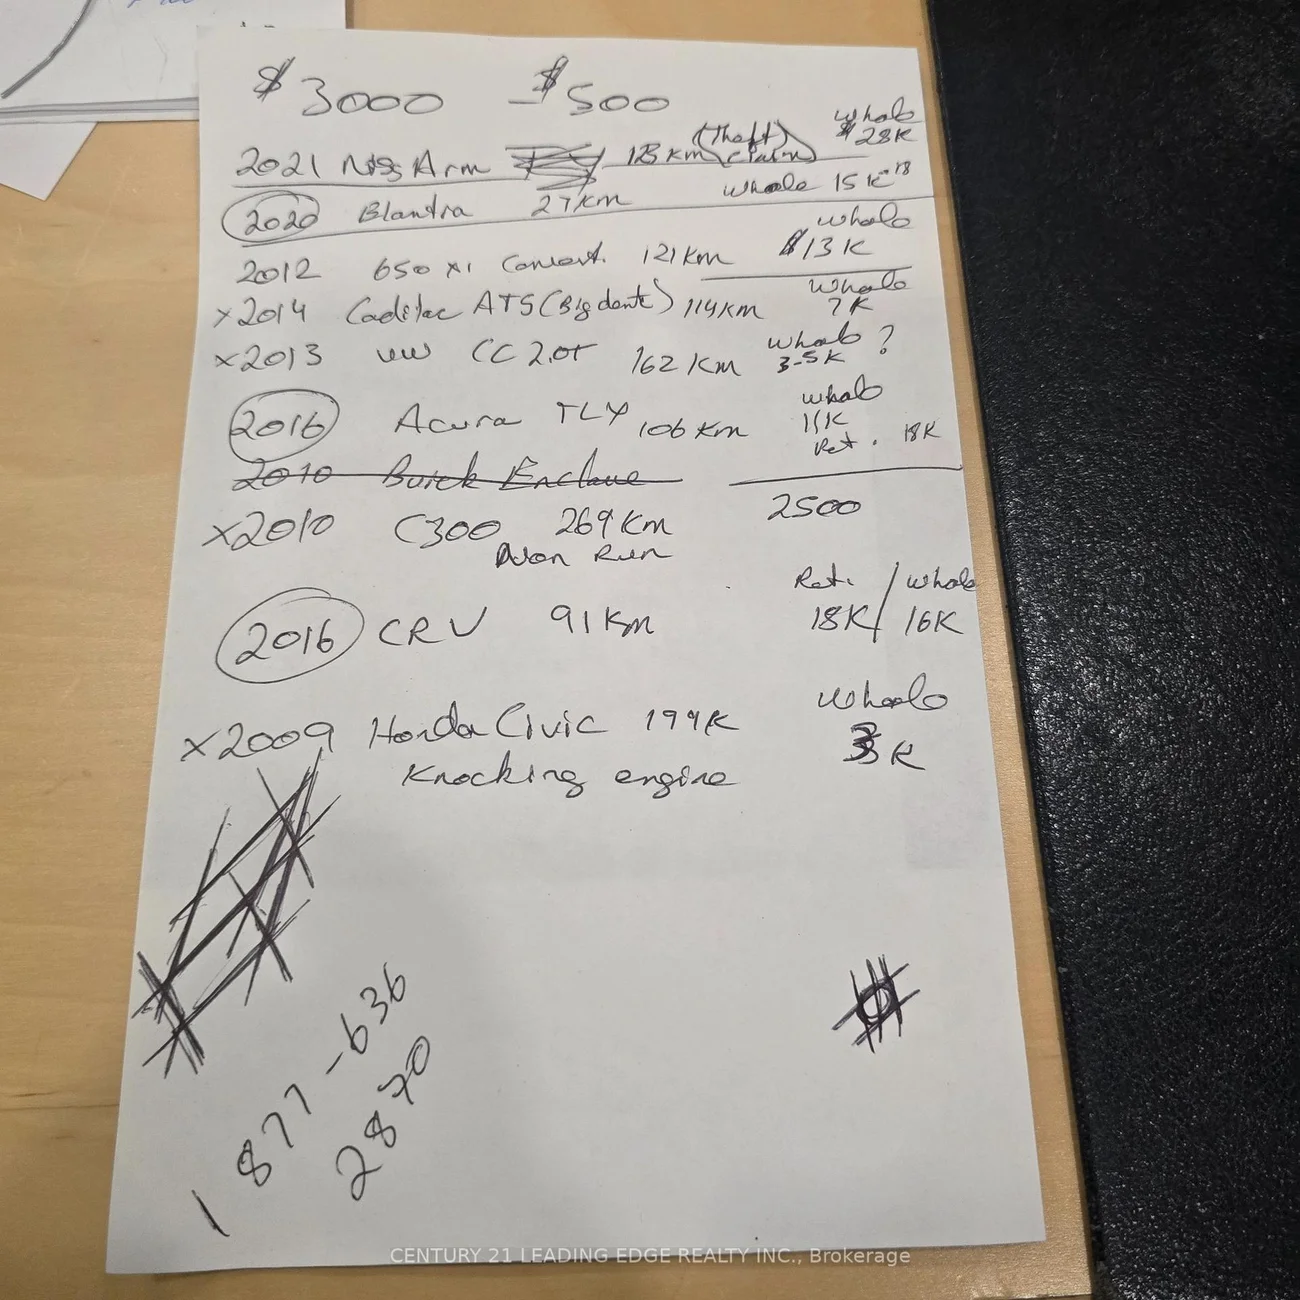 $3000 - $500
2021 Niss Arm 123 km (Theft) claim) whole $28K
2020 Elantra 27km whole 15K-18
2012 650 xi Convert. 121km whole $13K
x2014 Cadilac ATS (Big dent) 114km whole 7K
x2013 VW CC 2.0t 162 km whole ? 3-5K
2016 Acura TLX 106 km whole 11K
Ret. 18K
2010 Buick Enclave
x2010 C300 269km 2500
Non Run
2016 CRV 91 km Ret. 18K / whole 16K
x2009 Honda Civic 199K whole 3K
Knocking engine
1 877-636
2870
CENTURY 21 LEADING EDGE REALTY INC., Brokerage